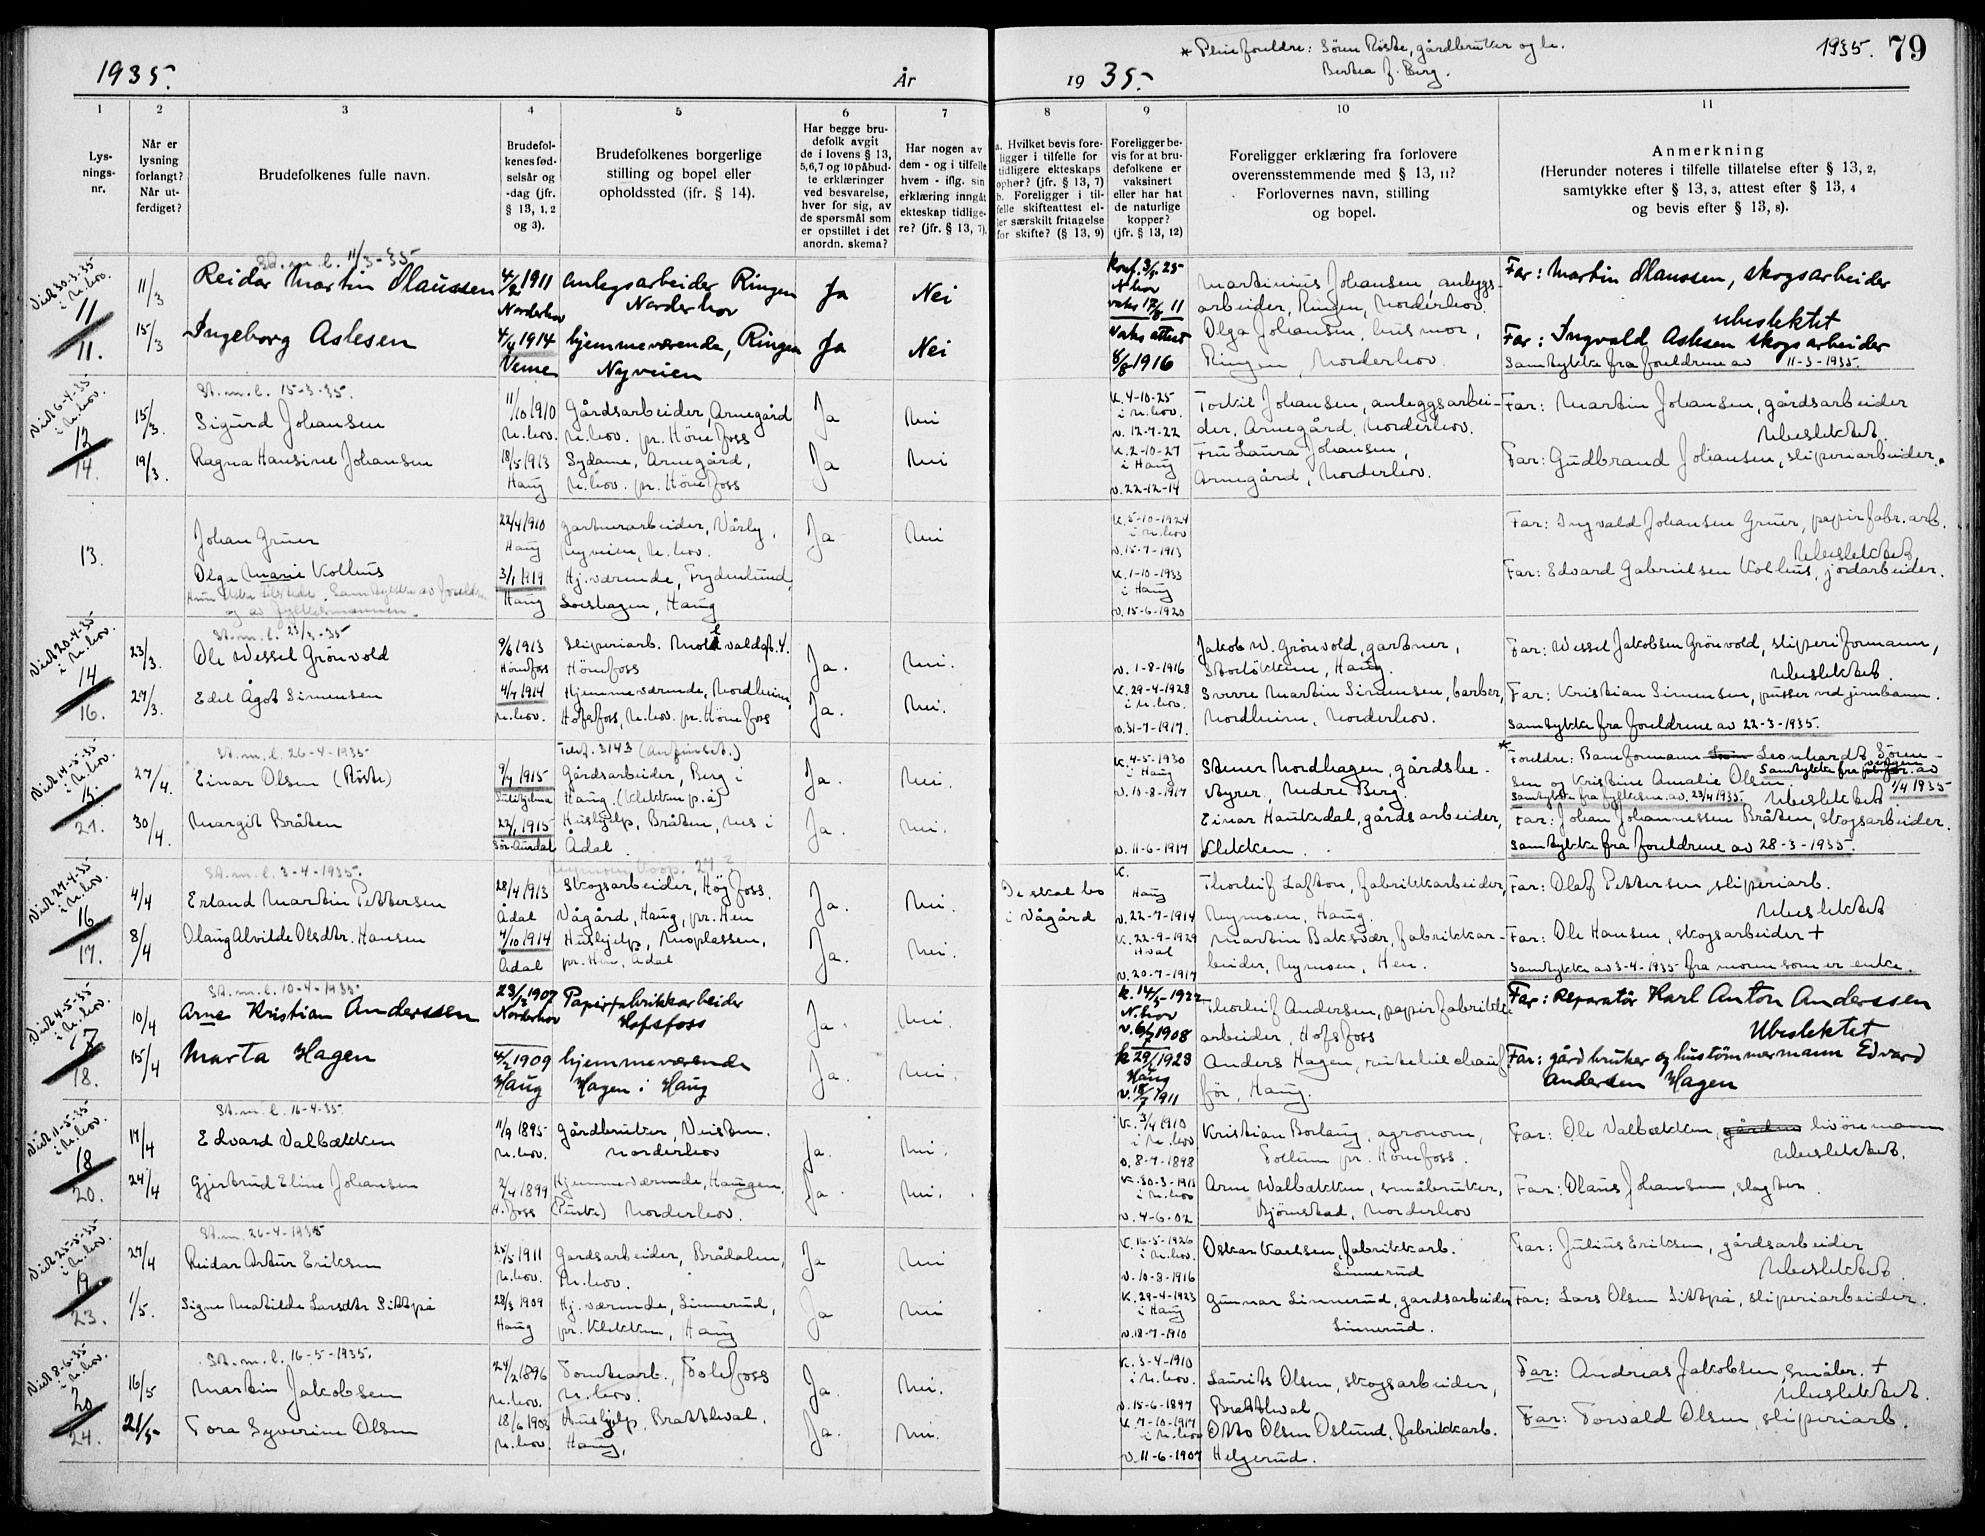 1935.
År
1
2
3
4
5
6
7
Lys-
nings-
nr.
Når er
lysning
forlangt?
Når ut-
ferdiget?
Brudefolkenes fulle navn.
Brudefol-
kenes fød-
selsår og
-dag (jfr.
§ 13, 1, 2
og 3).
Brudefolkenes borgerlige
stilling og bopel eller
opholdssted (ifr. § 14).
Har begge bru-
defolk avgit
de i lovens § 13,
5,6,7 og 10 påbud-
te erklæringer
ved besvarelse,
hver for sig, av
de spørsmål som
er opstillet i det
anordn. skema?
Har nogen av
dem - og i tilfelle
hvem - iflg. sin
erklæring inngåt
ekteskap tidlige-
re? (jfr. § 13, 7).
Viet 30-3-35
i N.hov.
11
11.
St.m.l. 11/3-35
11/3
Reidar Martin Olaussen
4/2 1911
Norderhov
Anlegsarbeider Ringen
Norderhov
Ja
Nei
15/3
Ingeborg Aslesen
4/4 1914
Veme
hjemmeværende, Ringen
Nyveien
Ja
Nei
Viet 6-4-35
i N.hov.
12
14.
St.m.l. 15-3-35.
15/3.
Sigurd Johansen
11/10 1910
N.hov.
Gårdsarbeider, Arnegård
N.hov. pr. Hönefoss
Ja
Nei
19/3.
Ragna Hansine Johansen
18/5 1913
Haug
Sydame, Arnegård,
N.hov. pr. Hönefoss
Ja
Nei
13.
Johan Gruer
22/4 1910
Haug
Gartnerarbeider, Vårly,
Nyveien, N.hov.
Ja
Nei
Olga Marie Kolhus
3/1 1919
Haug
Hj.værende, Frydenlund,
Loeshagen, Haug
Viet 20-4-35
i N.hov.
14
16.
St.m.l. 23/3-35
23/3.
Ole Wessel Grönvold
9/6 1913
Hönefoss
Sliperiarb.
Hönefoss
Ja.
Nei.
27/3.
Edel Ågot Simensen
4/7 1914
N.hov.
Hjemmeværende, Nordheim,
Hofsfoss, N.hov. pr. Hönefoss
Ja.
Nei.
Viet 14-5-35
i N.hov.
15
21.
St.m.l. 26-4-1935
27/4.
Einar Olsen (Röste)
9/7 1915
Sulitjelma
Telf. 3143
Gårdsarbeider, Berg i
Haug. (Klekken p.å)
Ja.
Nei.
30/4.
Margit Bråten
22/1 1915
Sör-Aurdal
Hushjelp, Bråten, Nes i
Ådal
Ja.
Nei.
Viet 27-4-35
i N.hov.
16
17.
St.m.l. 3-4-1935.
4/4
Erland Martin Pettersen
28/4 1913
Ådal
Skogsarbeider, Högfoss,
Vågård, Haug, pr. Hen
Ja.
Nei.
8/4
Olaug Alvilde Olsdtr. Hansen
4/10 1914
Ådal
Hushjelp, Moplassen,
pr. Hen, Ådal
Ja.
Nei.
Viet 4-5-35
i N.hov.
17
18.
St.m.l. 10-4-1935
10/4
Arne Kristian Anderssen
23/3 1907
Norderhov
Papirfabrikkarbeider
Hofsfoss
Ja.
Nei.
15/4
Marta Hagen
4/2 1909
Haug
hjemmeværende
Hagen i Haug
Ja.
Nei.
Viet 11-5-35
i N.hov.
18
20.
St.m.l. 16-4-35.
17/4
Edvard Valbækken
11/9 1895
N.hov.
Gårdbruker, Veisten.
Norderhov
Ja.
Nei.
24/4
Gjertrud Eline Johansen
2/4 1899
H.foss
Hjemmeværende, Haugen
Norderhov.
Ja.
Nei.
Viet 25-5-35
i N.hov.
19
23.
St.m. 26-4-1935
27/4
Reidar Artur Eriksen
25/5 1911
N.hov.
Gardsarbeider, Brådalen,
N.hov.
Ja
Nei
1/5.
Signe Matilde Larsdtr Sittpå
28/3 1909
Haug
Hj.værende, Sinnerud,
pr. Klekken, Haug
Ja
Nei
Viet 8-6-35
i N.hov.
20
24.
St.m.l. 16-5-1935.
16/5
Martin Jakobsen
24/2 1896
N.hov.
Tomtearb. Follofoss
N.hov
Ja.
Nei.
21/5
Tora Syverine Olsen
18/6 1903
N.hov.
Hushjelp, Brattval.
Haug,
Ja.
Nei.
* Pleieforeldre: Sören Röste, gårdbruker og h.
Bertea f. Berg.
1935. 79
19 35.
8
9
10
11
a. Hvilket bevis fore-
ligger i tilfelle for
tidligere ekteskaps
ophør? (jfr. § 13, 7)
b. Foreligger i til-
felle skifteattest el-
ler særskilt fritagelse
for skifte? (§ 13, 9)
Foreligger be-
vis for at bru-
defolkene er
vaksinert
eller har hat
de naturlige
kopper?
(jfr. § 13, 12)
Foreligger erklæring fra forlovere
overensstemmende med § 13, 11?
Forlovernes navn, stilling
og bopel.
Anmerkning
(Herunder noteres i tilfelle tillatelse efter § 13, 2,
samtykke efter § 13, 3, attest efter § 13, 4
og bevis efter § 13, 8).
N.hov
vaks 17/8 11
Martinius Johansen, anleggs-
arbeider, Ringen, Norderhov
Far: Martin Olaussen, skogsarbeider
Ubeslektet
vaks attest
8/8 1916
Olga Johansen, husmor,
Ringen, Norderhov.
Far: Ingvald Aslesen skogsarbeider
Samtykke fra foreldrene av 11-3-1935.
K. 4-10-25
i N.hov.
v. 12-7-22
Torkil Johansen, anleggsarbei-
der, Arnegård, Norderhov.
Far: Martin Johansen, gårdsarbeider
Ubeslektet
K. 2-10-27
i Haug
v. 22-12-14
Fru Laura Johansen,
Arnegård, Norderhov.
Far: Gudbrand Johansen, sliperiarbeider.
K. 5-10-1924
i N.hov
v. 15-7-1913
Far: Ingvald Johansen Gruer, papirfabr.arb.
Ubeslektet
K. 1-10-1933
i Haug
v. 15-6-1920
Far: Edvard Gabrielsen Kolhus, jordarbeider.
v. 1-8-1916
Jakob W. Grönvold, gartner,
Storlökken, Haug.
Far: Wessel Jakobsen Grönvold, sliperiformann,
Ubeslektet.
K. 29-4-1928
i N.hov.
v. 31-7-1917.
Sverre Martin Simensen, barber,
Nordheim, Norderhov.
Far: Kristian Simensen, pusser ved jernbanen.
Samtykke fra foreldrene av 22-3-1935.
K. 4-5-1930
i Haug
v. 10-8-1917
Stener Nordhagen, gårdsbe-
styrer, Nedre Berg.
* Foreldre: Baneformann Leonhardt Sören-
sen og Kristine Amalie Olsen
Samtykke fra fylkesm. av. 23/4 1935
Ubeslektet
v. 11-6-1917
Einar Haukedal, gårdsarbeider,
Klekken.
Far: Johan Johannessen Bråten, skogsarbeider.
Samtykke fra foreldrene av 28-3-1935.
De skal bo
i Vågård
K.
Haug
v. 22-7-1914
Thorleif Lafton, fabrikkarbeider,
Heymoen, Haug.
Far: Olaf Pettersen, sliperiarb.
Ubeslektet
K. 22-9-1929
Hval
v. 20-7-1917
Martin Baksvær, fabrikkar-
beider, Heymoen, Hen.
Far: Ole Hansen, skogsarbeider +
Samtykke av 3-4-1935 fra moren som er enke.
k. 14/5-1922
N.hov
v. 6/7 1908
Thorleif Andersen, papirfabrikk-
arbeider, Hofsfoss
Far: Reparatör Karl Anton Anderssen
Ubeslektet
k 29/4 1923
Haug
v. 18/7 1911
Anders Hagen, rutebilchauf-
för, Haug.
Far: gårdbruker og hustömmermann Edvard
Andersen Hagen
K. 3/4 1910
i N.hov
v. 8-7-1898
Kristian Borlaug, agronom,
Tollum pr. Hönefoss.
Far: Ole Valbækken, livöremann
Ubeslektet.
K. 30-3-1913
i N.hov
v. 4-6-02
Arne Walbækken, småbruker,
Bjönstad, Norderhov
Far: Olaus Johansen, slagter.
K. 16-5-1926
i N.hov.
v. 10-8-1916
Oskar Karlsen, fabrikkarb.
Sinnerud
Far: Julius Eriksen, gårdsarbeider
Ubeslektet.
K. 29-4-1923
i Haug
v. 18-7-1910
Gunnar Sinnerud, gardsarbeider
Sinnerud.
Far: Lars Olsen Sittpå, sliperiarbeider.
K. 3-4-1910
i N.hov.
v. 15-6-1897
Laurits Olsen, skogsarbeider,
Brattval
Far: Andreas Jakobsen, småbr. +
Ubeslektet.
K. 7-10-1917
i N.hov
v. 11-6-1907
Otto Olsen Oslund, fabrikkarb.
Helgerud.
Far: Torvald Olsen, sliperiarb.